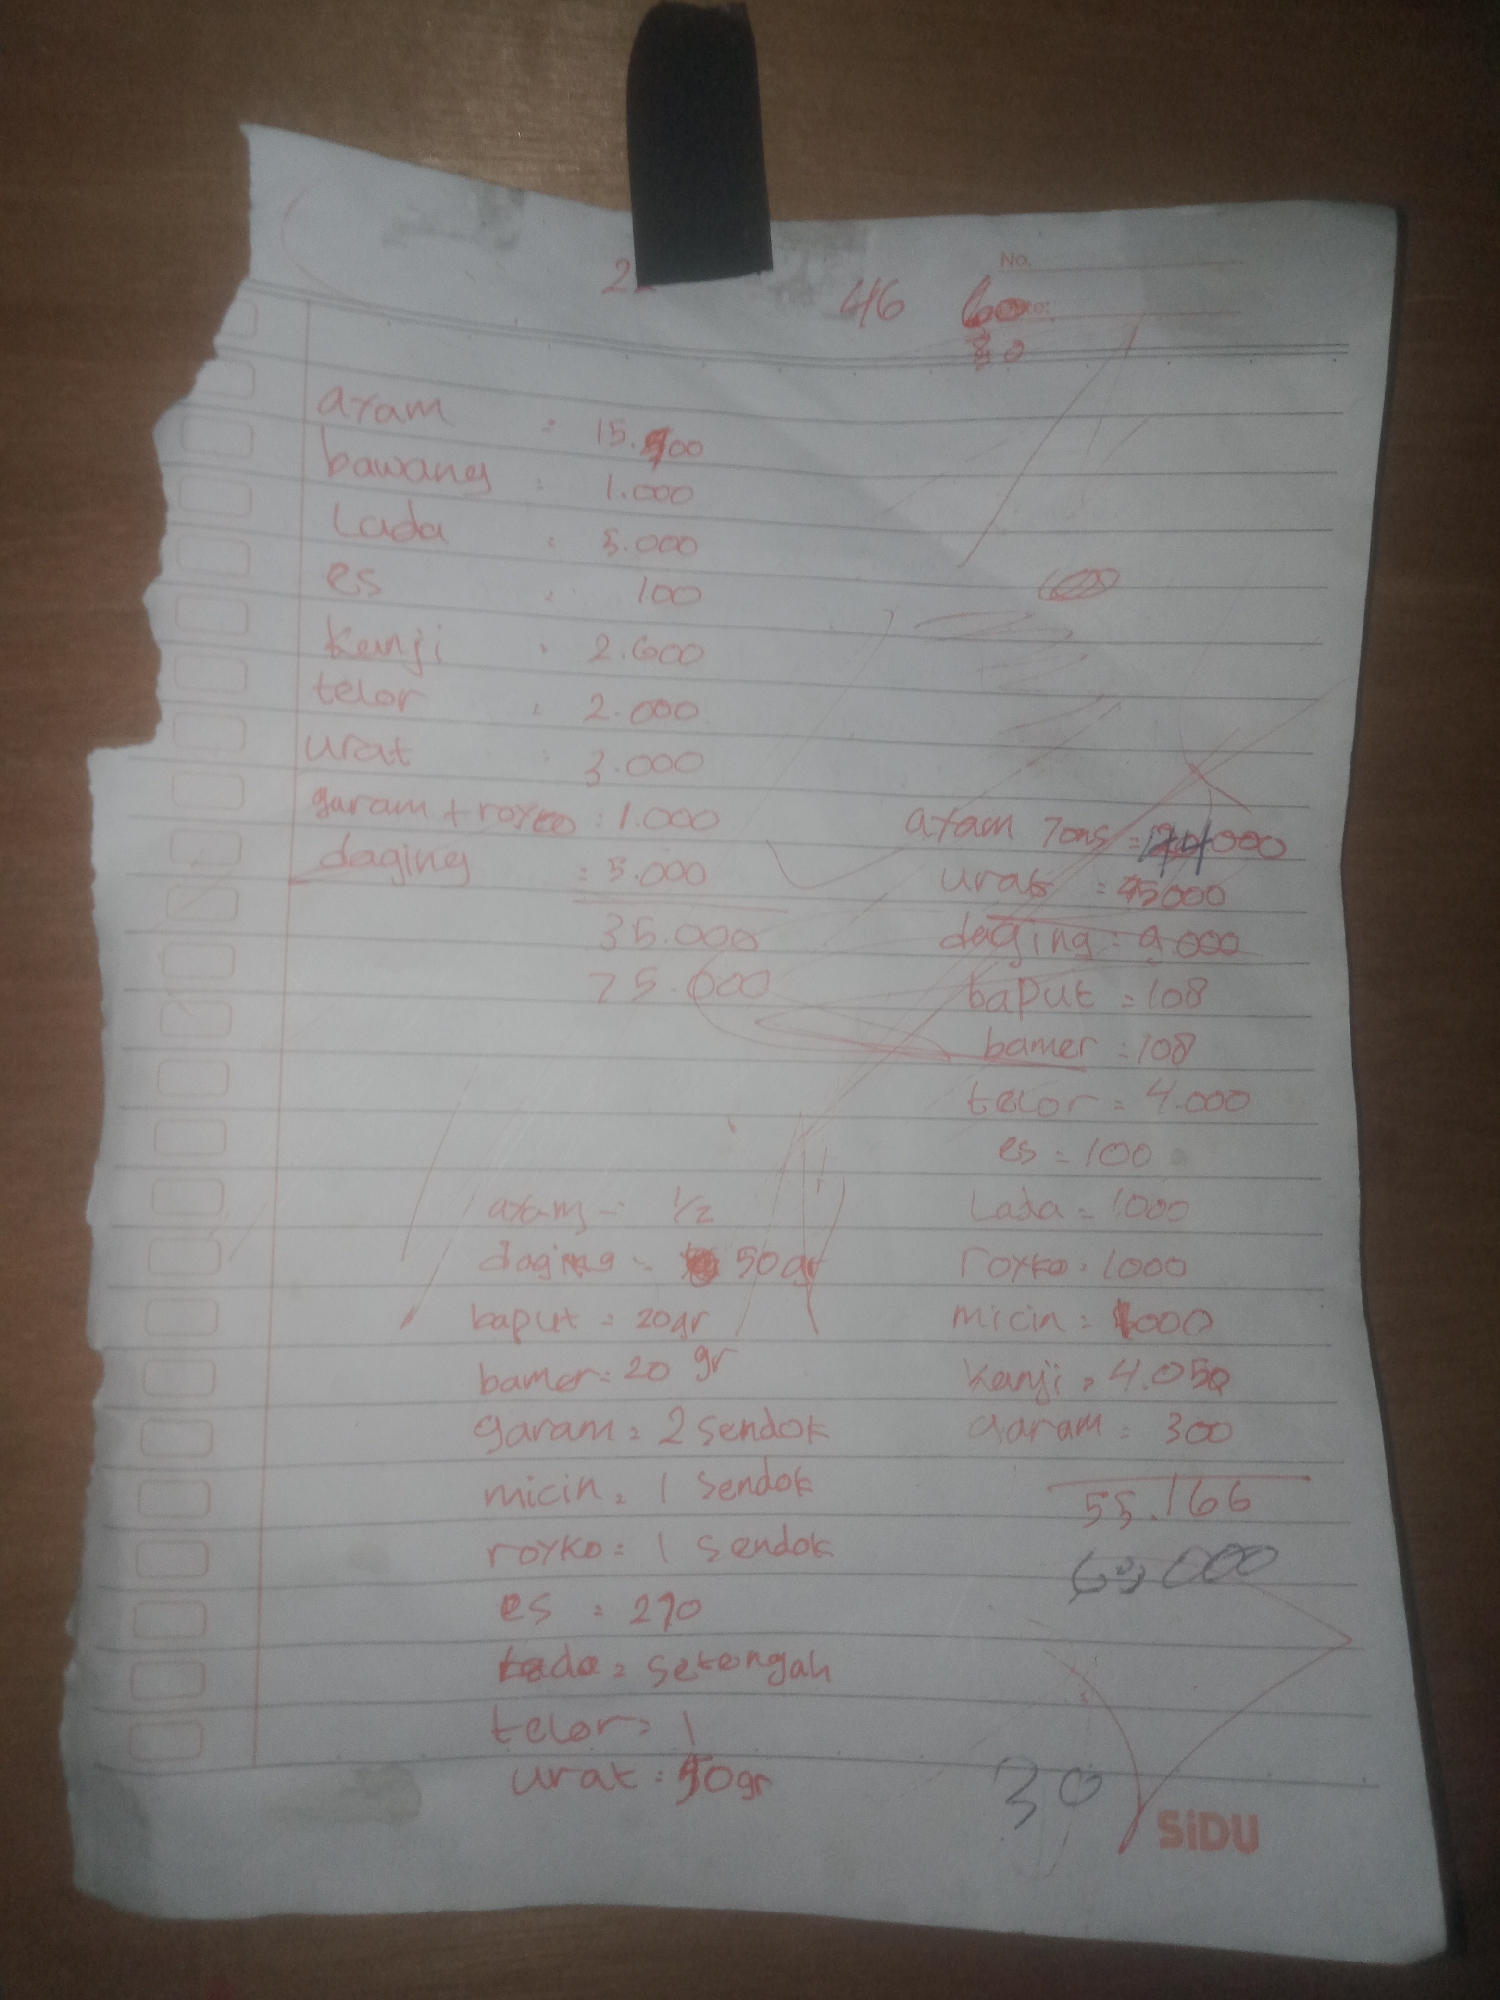 No.
46
30
ayam : 15.500
bawang : 1.000
Lada : 5.000
es : 100
kanji : 2.600
telor : 2.000
urat : 3.000
garam + royco : 1.000
daging : 5.000
35.000
75.000
ayam 7ons = 000
urat = 15000
daging = 9.000
baput = 108
bamer = 108
telor = 4.000
es = 100
Lada = 1000
royko = 1000
micin = 1000
kanji = 4.050
garam = 300
55.166
ayam = 1/2
daging = 50gr
baput = 20gr
bamer = 20 gr
garam = 2 sendok
micin = 1 sendok
royko = 1 sendok
es = 270
lada = setengah
telor = 1
urat = 50gr
30
SiDU